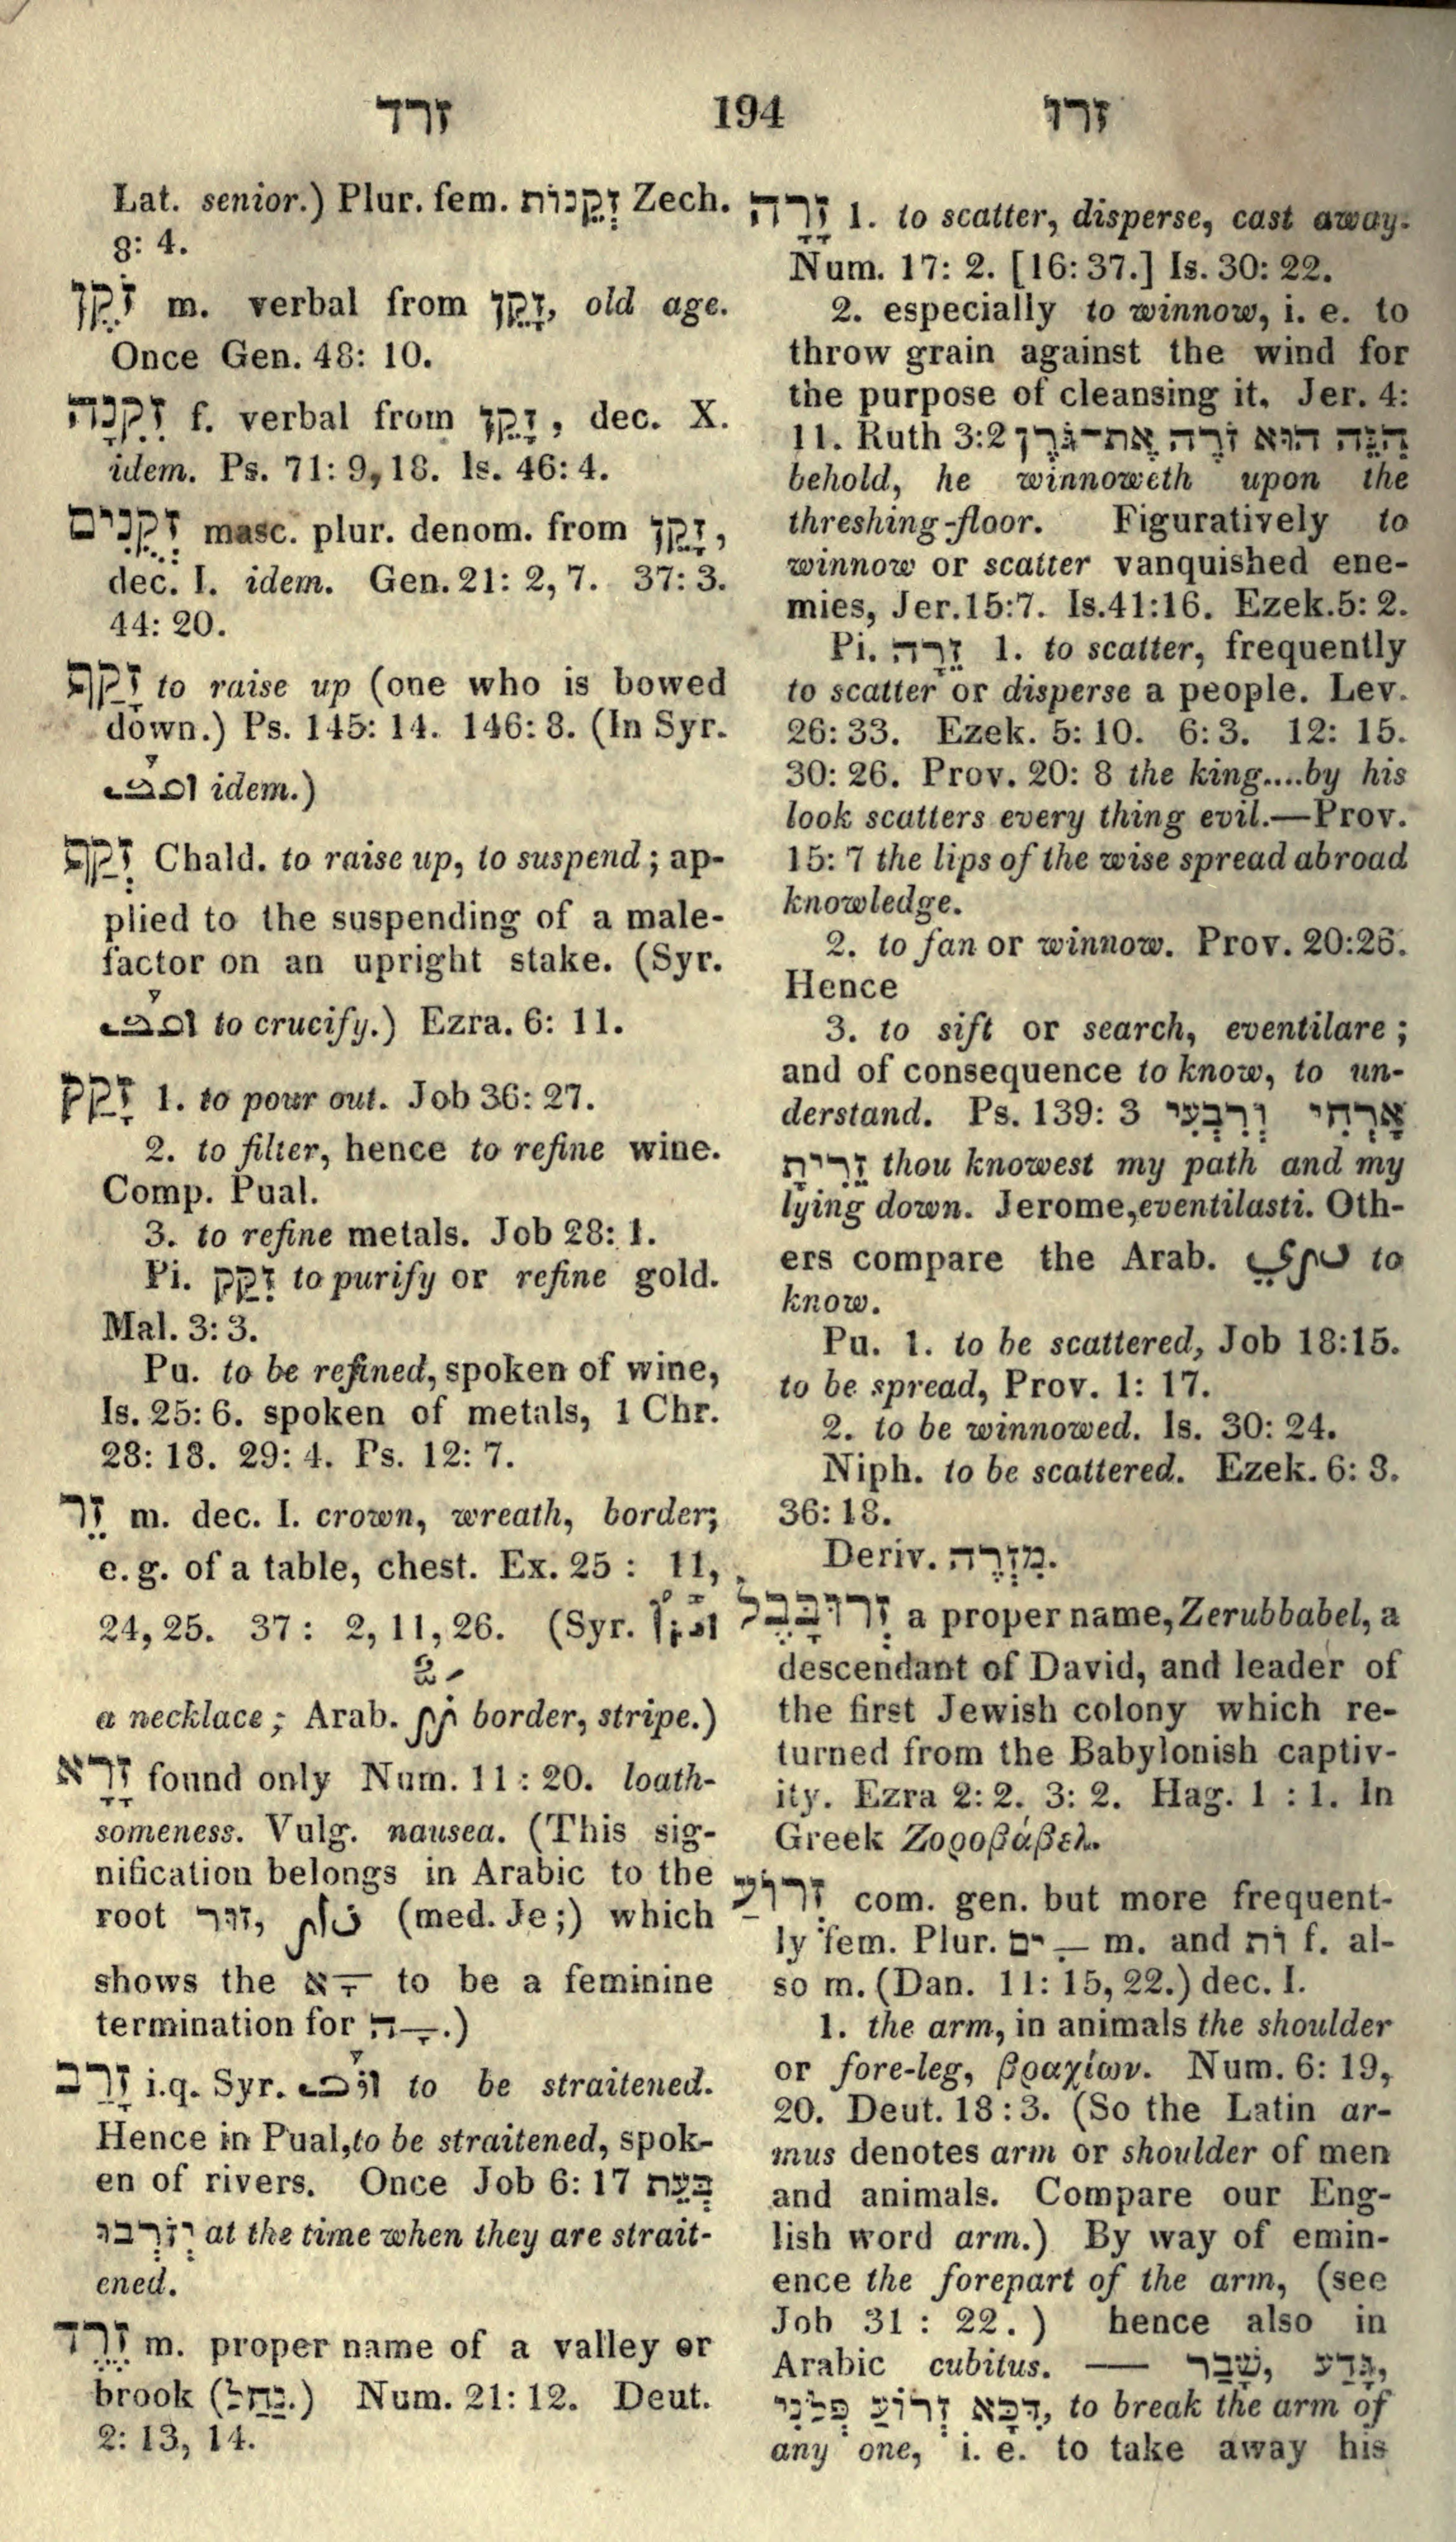 זרד 194 זרו
Lat. senior.) Plur. fem. זְקֵנוֹת Zech.
8: 4.
זֹקֶן m. verbal from זָקֵן, old age.
Once Gen. 48: 10.
זִקְנָה f. verbal from זָקֵן, dec. X.
idem. Ps. 71: 9, 18. Is. 46: 4.
זְקֻנִים masc. plur. denom. from זָקֵן,
dec. I. idem. Gen. 21: 2, 7. 37: 3.
44: 20.
זָקַף to raise up (one who is bowed
down.) Ps. 145: 14. 146: 8. (In Syr.
ܙܩܦ idem.)
זְקַף Chald. to raise up, to suspend; ap-
plied to the suspending of a male-
factor on an upright stake. (Syr.
ܙܩܦ to crucify.) Ezra. 6: 11.
זָקַק 1. to pour out. Job 36: 27.
2. to filter, hence to refine wine.
Comp. Pual.
3. to refine metals. Job 28: 1.
Pi. זִקֵּק to purify or refine gold.
Mal. 3: 3.
Pu. to be refined, spoken of wine,
Is. 25: 6. spoken of metals, 1 Chr.
28: 18. 29: 4. Ps. 12: 7.
זֵר m. dec. I. crown, wreath, border;
e. g. of a table, chest. Ex. 25 : 11,
24, 25. 37 : 2, 11, 26. (Syr.
a necklace; Arab. زر border, stripe.)
זָרָא found only Num. 11 : 20. loath-
someness. Vulg. nausea. (This sig-
nification belongs in Arabic to the
root זוּר, (med. Je;) which
shows the ־ָא to be a feminine
termination for ־ָה.)
זָרַב i.q. Syr. ܙܪܒ to be straitened.
Hence in Pual, to be straitened, spok-
en of rivers. Once Job 6: 17 בְּעֵת
יְזֹרְבוּ at the time when they are strait-
ened.
זֶרֶד m. proper name of a valley or
brook (נַחַל.) Num. 21: 12. Deut.
2: 13, 14.
זָרָה 1. to scatter, disperse, cast away.
Num. 17: 2. [16: 37.] Is. 30: 22.
2. especially to winnow, i. e. to
throw grain against the wind for
the purpose of cleansing it. Jer. 4:
11. Ruth 3:2 הִנֵּה הוּא זֹרֶה אֶת־גֹּרֶן
behold, he winnoweth upon the
threshing-floor. Figuratively to
winnow or scatter vanquished ene-
mies, Jer. 15:7. Is. 41:16. Ezek. 5: 2.
Pi. זֵרָה 1. to scatter, frequently
to scatter or disperse a people. Lev.
26: 33. Ezek. 5: 10. 6: 3. 12: 15.
30: 26. Prov. 20: 8 the king....by his
look scatters every thing evil.—Prov.
15: 7 the lips of the wise spread abroad
knowledge.
2. to fan or winnow. Prov. 20:26.
Hence
3. to sift or search, eventilare;
and of consequence to know, to un-
derstand. Ps. 139: 3 אָרְחִי וְרִבְעִי
זֵרִיתָ thou knowest my path and my
lying down. Jerome, eventilasti. Oth-
ers compare the Arab. to
know.
Pu. 1. to be scattered, Job 18:15.
to be spread, Prov. 1: 17.
2. to be winnowed. Is. 30: 24.
Niph. to be scattered. Ezek. 6: 8.
36: 18.
Deriv. מִזְרֶה.
זְרוּבָּבֶל a proper name, Zerubbabel, a
descendant of David, and leader of
the first Jewish colony which re-
turned from the Babylonish captiv-
ity. Ezra 2: 2. 3: 2. Hag. 1 : 1. In
Greek Ζοροβάβελ.
זְרוֹעַ com. gen. but more frequent-
ly fem. Plur. ־ִים m. and וֹת f. al-
so m. (Dan. 11: 15, 22.) dec. I.
1. the arm, in animals the shoulder
or fore-leg, βραχίων. Num. 6: 19,
20. Deut. 18 : 3. (So the Latin ar-
mus denotes arm or shoulder of men
and animals. Compare our Eng-
lish word arm.) By way of emin-
ence the forepart of the arm, (see
Job 31 : 22.) hence also in
Arabic cubitus. —— גָּדַע, שָׁבַר,
דִּכָּא זְרוֹעַ פְּלֹנִי, to break the arm of
any one, i. e. to take away his